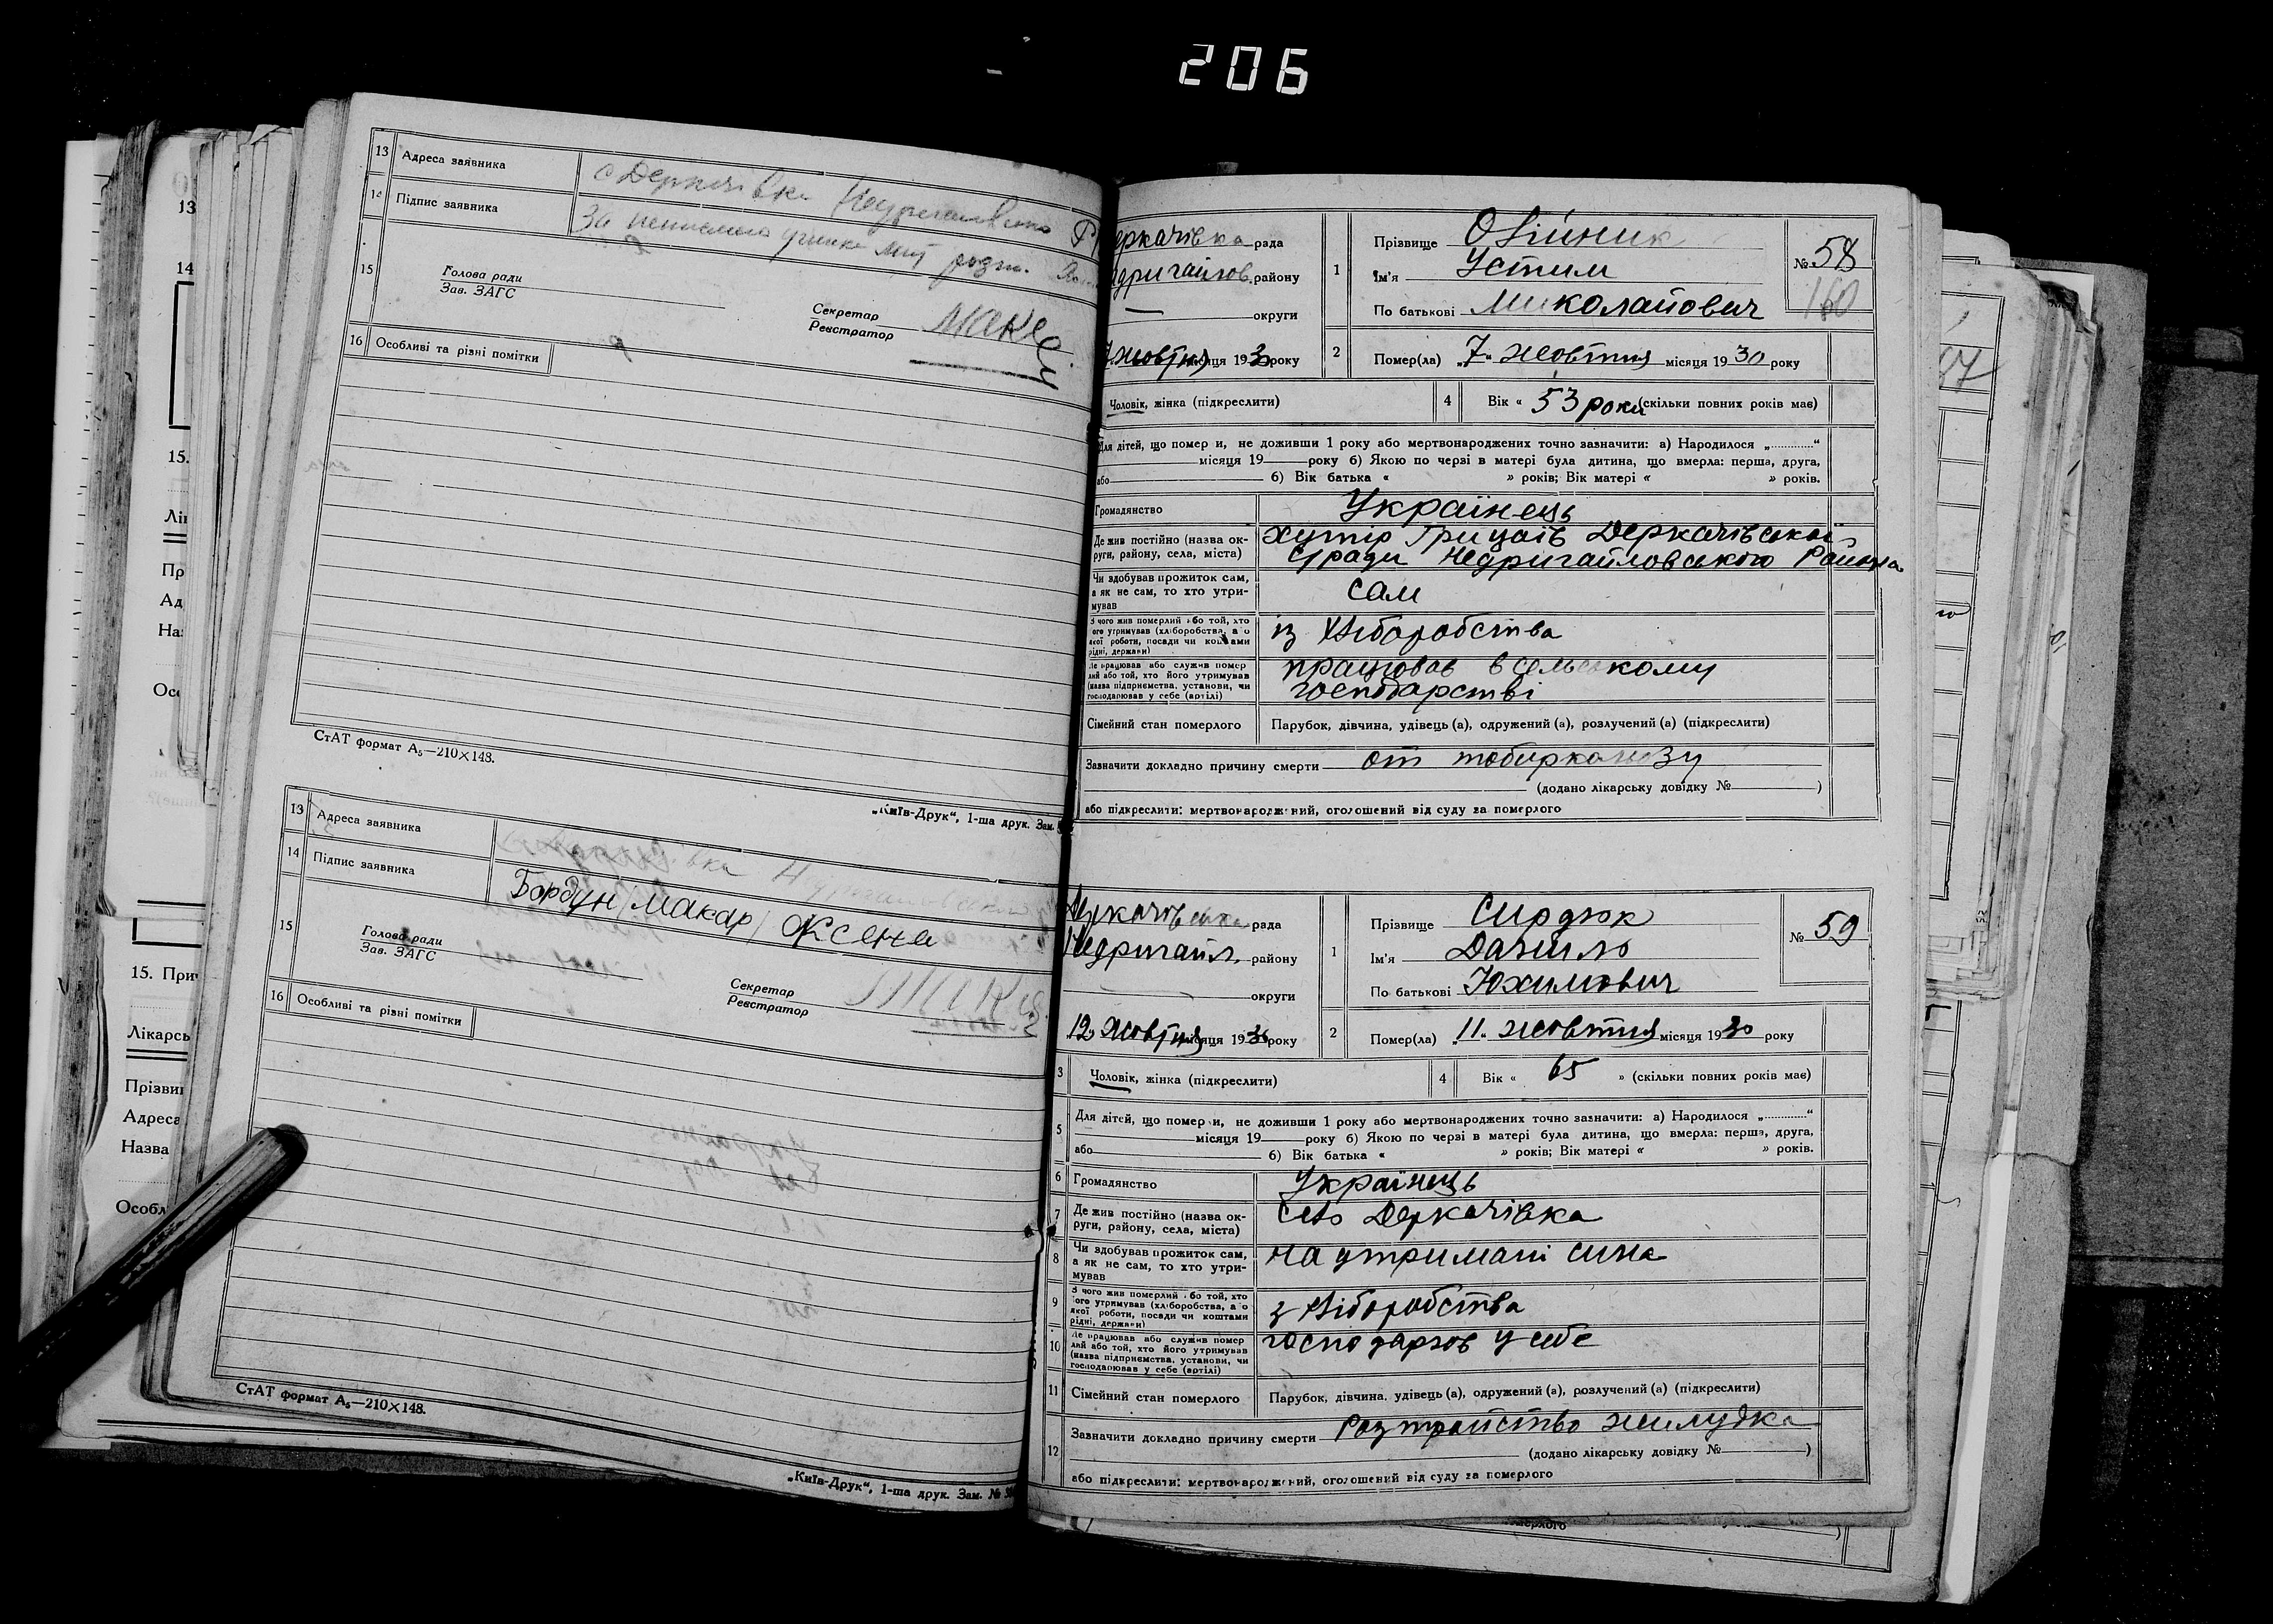 206
13 Адреса заявника с Деркачівка
14 Підпис заявника За неписьмен
15 Голова ради
Зав. ЗАГС
Секретар
Реєстратор
16 Особливі та різні помітки
СтАТ формат А₅—210×148.
„Київ-Друк“, 1-ша друк. Зам.
13 Адреса заявника
14 Підпис заявника Бордун Макар Оксена
15 Голова ради
Зав. ЗАГС
Секретар
Реєстратор
16 Особливі та різні помітки
СтАТ формат А₅—210×148.
„Київ-Друк“, 1-ша друк. Зам. №
еркачівка рада
дригайлов. району
— округи
7 жовтня місяця 1930 року
1 Прізвище Олійник
Ім'я Устим
По батькові Миколайович
№ 58
160
2 Помер(ла) „7“ жовтня місяця 1930 року
Чоловік, жінка (підкреслити)
4 Вік « 53 роки (скільки повних років має)
Для дітей, що помер и, не доживши 1 року або мертвонароджених точно зазначити: а) Народилося „............“
місяця 19 року б) Якою по черзі в матері була дитина, що вмерла: перша, друга,
або б) Вік батька « » років; Вік матері « » років.
Громадянство Українець
Де жив постійно (назва ок-
руги, району, села, міста) хутір Грицаїв Деркачівської
с/ради Недригайловського Района
Чи здобував прожиток сам,
а як не сам, то хто утри-
мував сам
З чого жив померлий або той, хто
його утримував (хліборобства, а о
якої роботи, посади чи коштами
рідні, держави) із Хліборобства
Де працював або служив помер
лий або той, хто його утримував
(назва підприємства, установи, чи
господарював у себе (артілі) працював в сельському
господарстві
Сімейний стан померлого Парубок, дівчина, удівець (а), одружений (а), розлучений (а) (підкреслити)
Зазначити докладно причину смерти от тобиркольозу
(додано лікарську довідку № )
або підкреслити: мертвонароджений, оголошений від суду за померлого
Деркачівська рада
Недригайл. району
округи
12 жовтня місяця 1930 року
1 Прізвище Сирдюк
Ім'я Данило
По батькові Юхимович
№ 59
2 Помер(ла) „11“ жовтня місяця 1930 року
3 Чоловік, жінка (підкреслити)
4 Вік « 65 » (скільки повних років має)
5 Для дітей, що помер и, не доживши 1 року або мертвонароджених точно зазначити: а) Народилося „............“
місяця 19 року б) Якою по черзі в матері була дитина, що вмерла: перша, друга,
або б) Вік батька « » років; Вік матері « » років.
6 Громадянство Українець
7 Де жив постійно (назва ок-
руги, району, села, міста) село Деркачівка
8 Чи здобував прожиток сам,
а як не сам, то хто утри-
мував на утримані сина
9 З чого жив померлий або той, хто
його утримував (хліборобства, а о
якої роботи, посади чи коштами
рідні, держави) з Хліборобства
10 Де працював або служив помер
лий або той, хто його утримував
(назва підприємства, установи, чи
господарював у себе (артілі) господарюв у себе
11 Сімейний стан померлого Парубок, дівчина, удівець (а), одружений (а), розлучений (а) (підкреслити)
12 Зазначити докладно причину смерти Розтройство жилудка
(додано лікарську довідку № )
або підкреслити: мертвонароджений, оголошений від суду за померлого
13
14
15.
15. При
Лікарсь
Прізви
Адреса
Назва